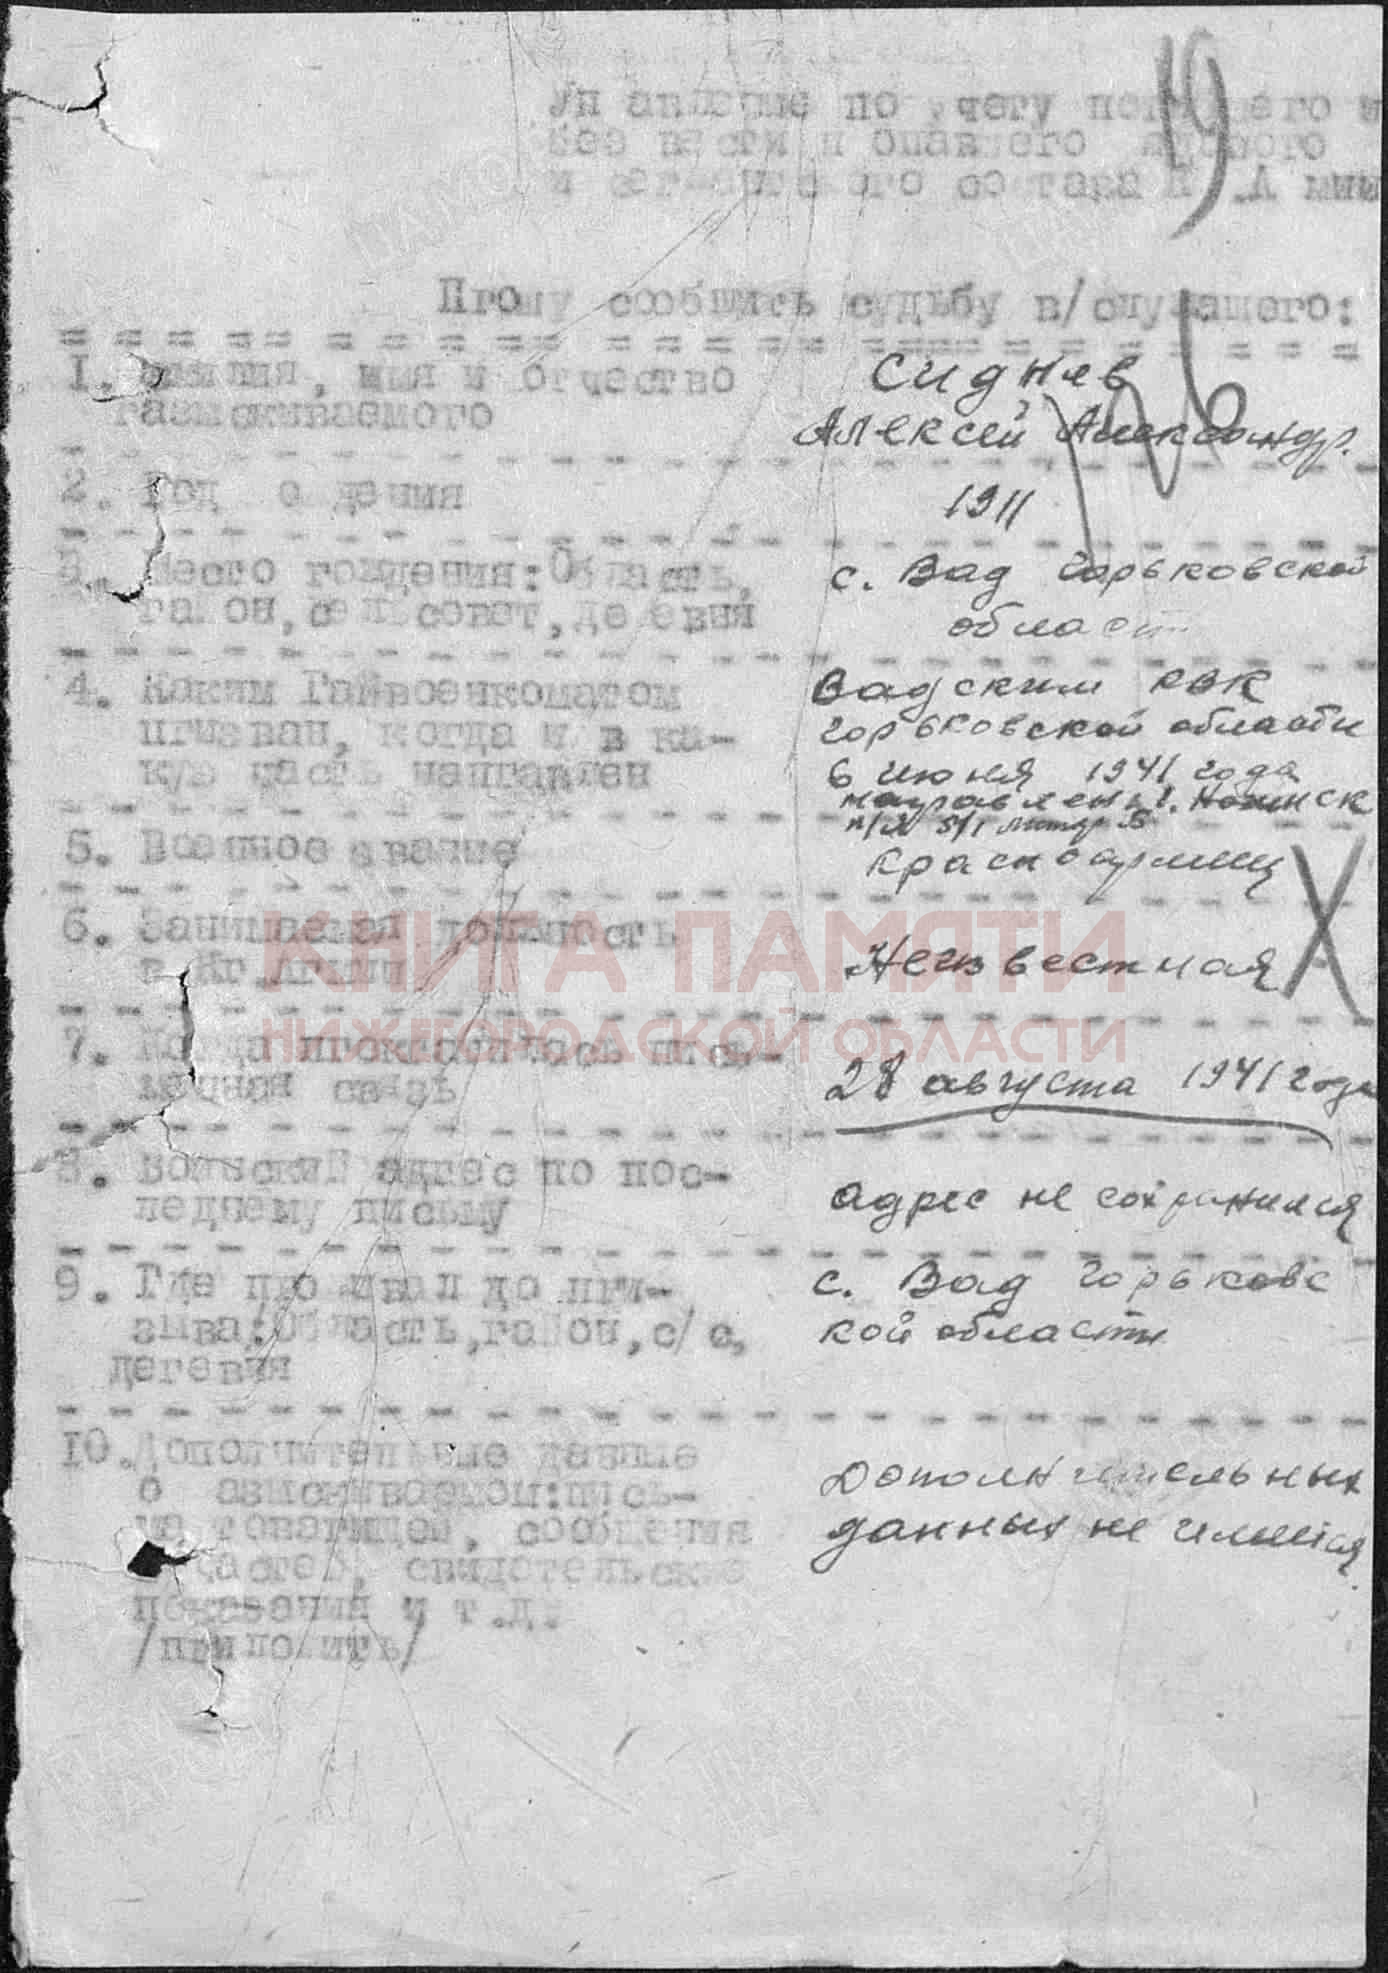 19
Управление по учету погибшего и
без вести пропавшего рядового
и сержантского состава К.А.
Прошу сообщить судьбу в/служащего:
= = = = = = = = = = = = = = = = = = = = = = = =
1. Фамилия, имя и отчество
разыскиваемого
Сиднев
Алексей Александр.
2. Год рождения
1911
3. Место рождения: Область,
район, сельсовет, деревня
с. Вад Горьковской
област
4. Каким Райвоенкоматом
призван, когда и в ка-
кую часть направлен
Вадским РВК
Горьковской области
6 июня 1941 года
направлен г.
п/я 5/1 литер
5. Военное звание
красноармеец
6. Занимаемая должность
в Кр.Армии
Неизвестная
КНИГА ПАМЯТИ
НИЖЕГОРОДСКОЙ ОБЛАСТИ
7. Когда прекратилась пись-
менная связь
28 августа 1941 года
8. Воинский адрес по пос-
леднему письму
адрес не сохранился
9. Где проживал до при-
зыва: Область, район, с/с,
деревня
с. Вад Горьковс
кой области
10. Дополнительные данные
о разыскиваемом: пись-
ма товарищей, сообщения
частей, свидетельские
показания и т.д.
/приложить/
Дополнительных
данных не имеется.